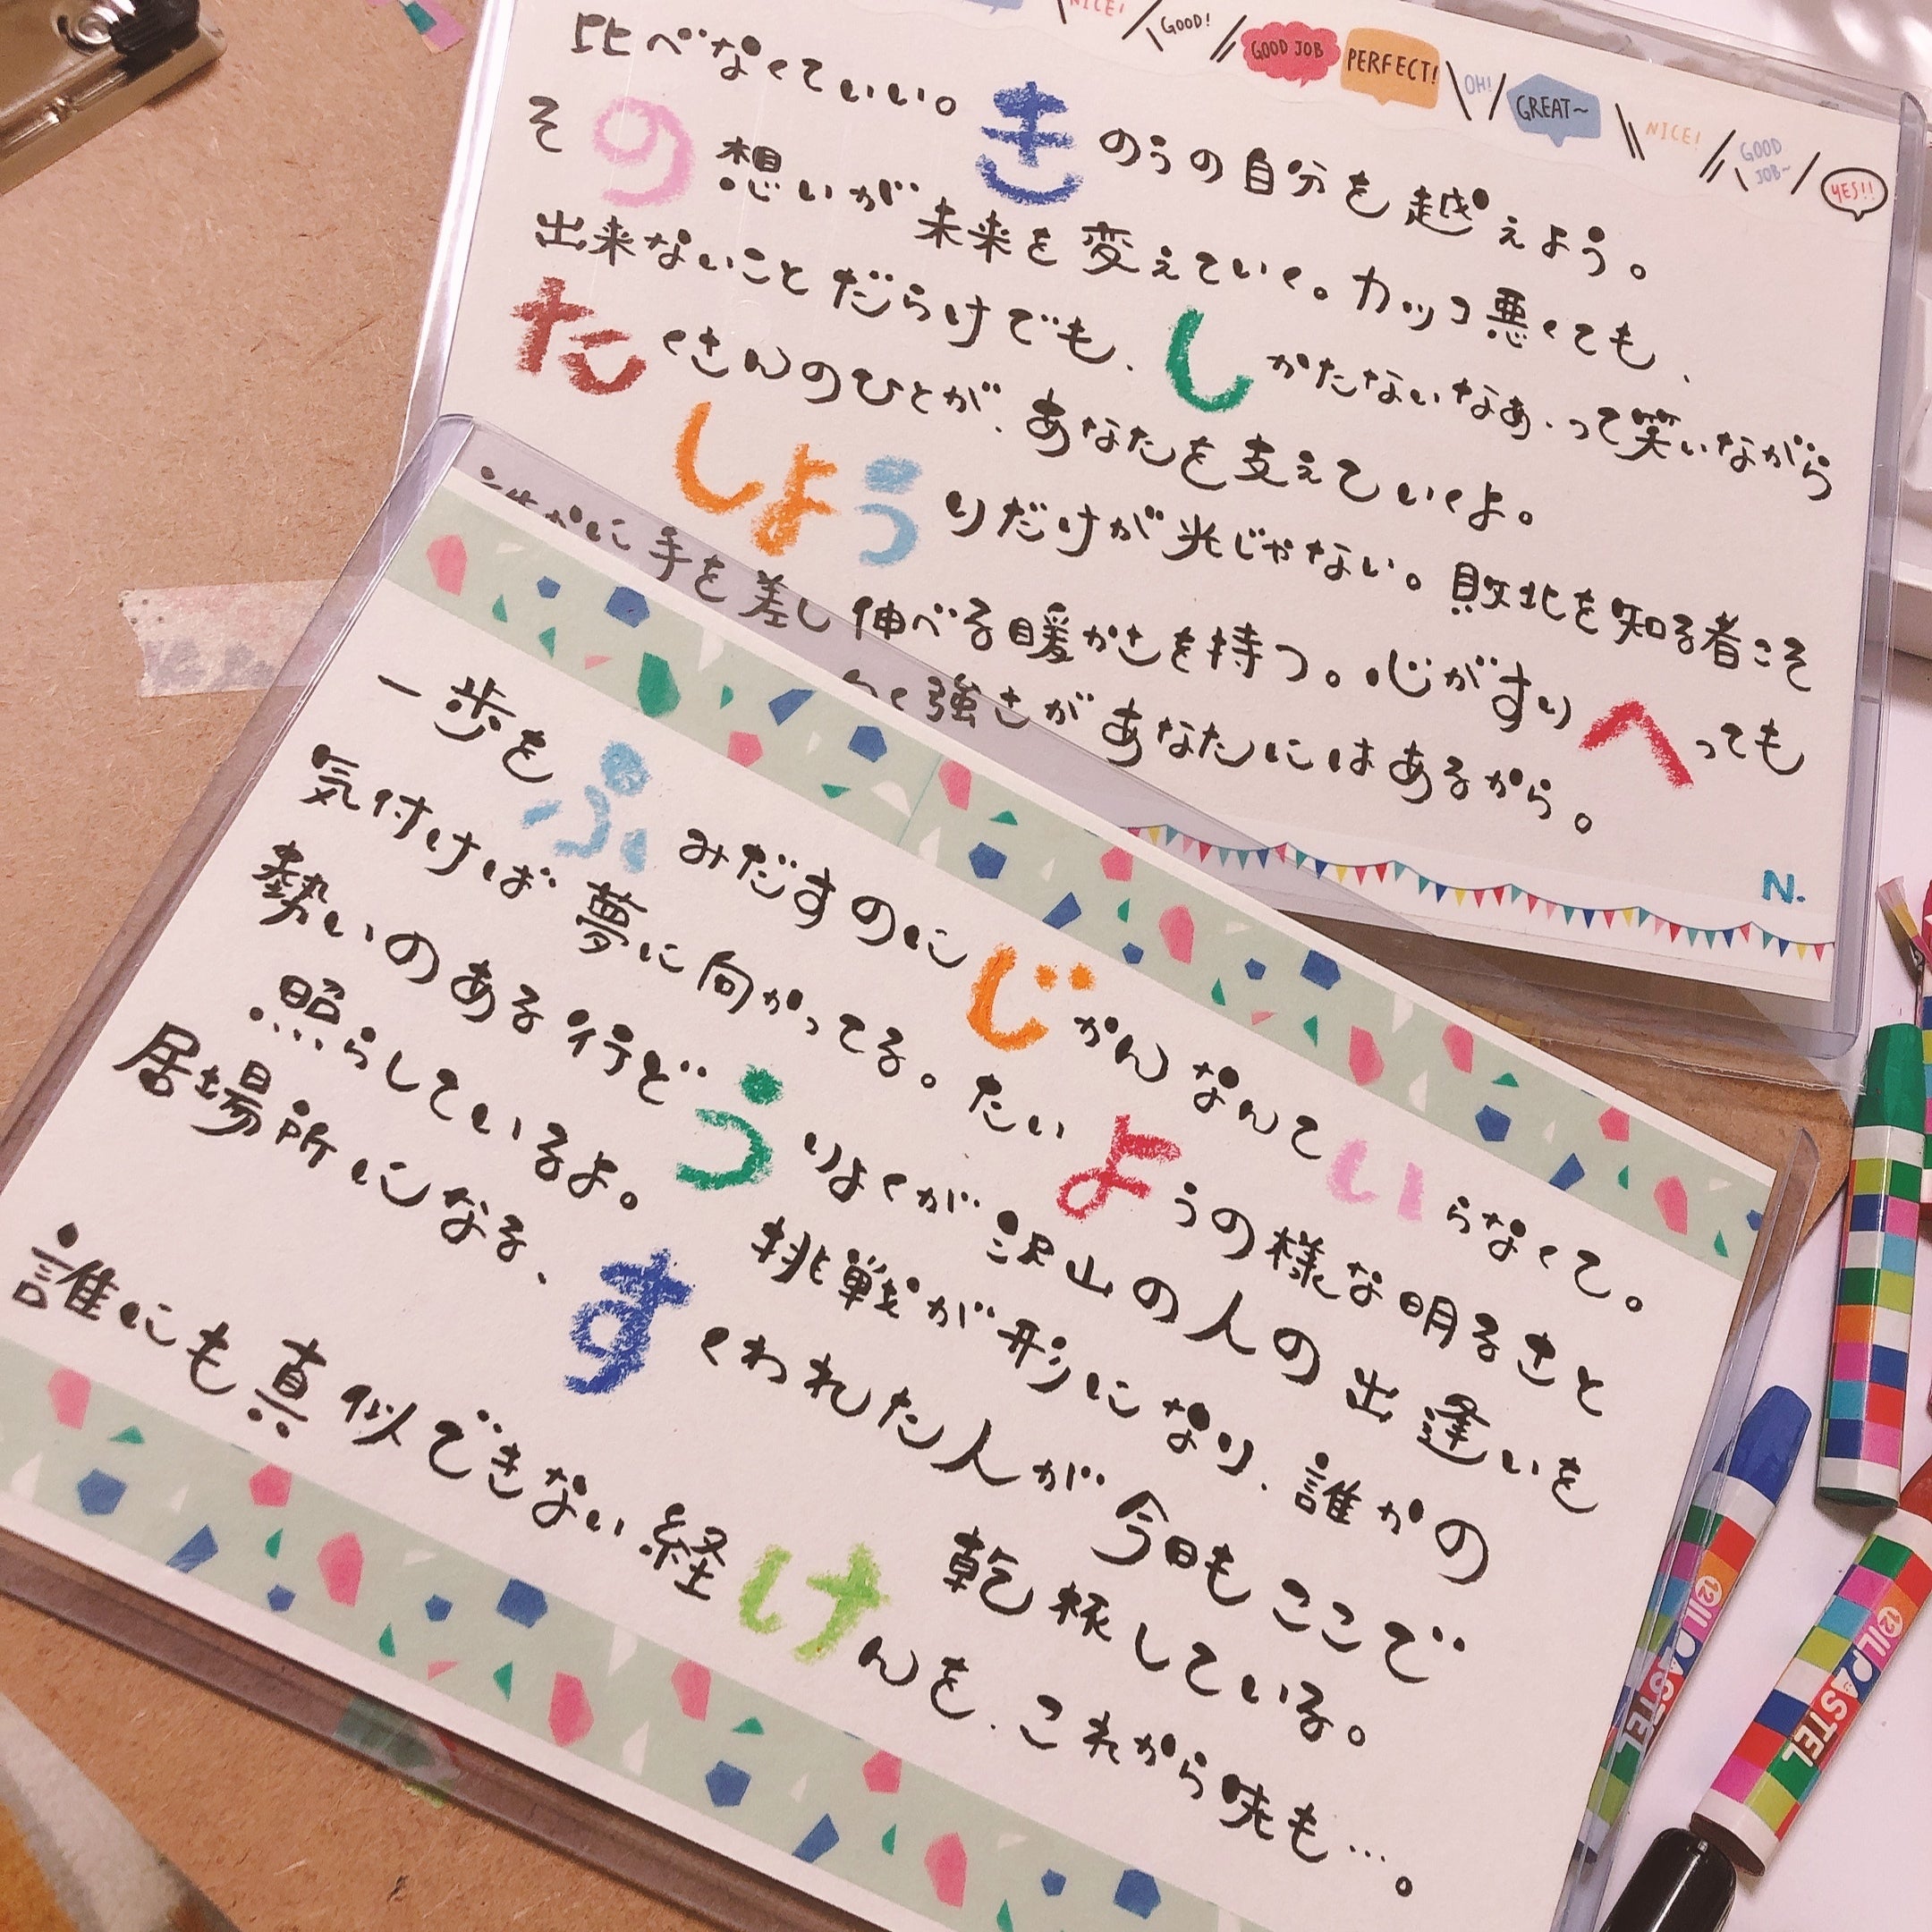 NICE!
GOOD!
GOOD JOB
PERFECT!
OH!
GREAT~
NICE!
GOOD JOB~
YES!!
比べなくていい。きのうの自分を越えよう。
その想いが未来を変えていく。カッコ悪くても、
出来ないことだらけでも、しかたないなあ、って笑いながら
たくさんのひとが、あなたを支えていくよ。
しょうりだけが光じゃない。敗北を知る者こそ
誰かに手を差し伸べる暖かさを持つ。心がすりへっても
く強さがあなたにはあるから。
N.
一歩をぷみだすのにじかんなんていらなくて。
気付けば夢に向かってる。たいようの様な明るさと
勢いのある行どうりょくが沢山の人の出逢いを
照らしているよ。挑戦が形になり、誰かの
居場所になる、すくわれた人が今日もここで
乾杯している。
誰にも真似できない経けんを、これから味も…。
12 IL PASTEL
12 IL PASTEL